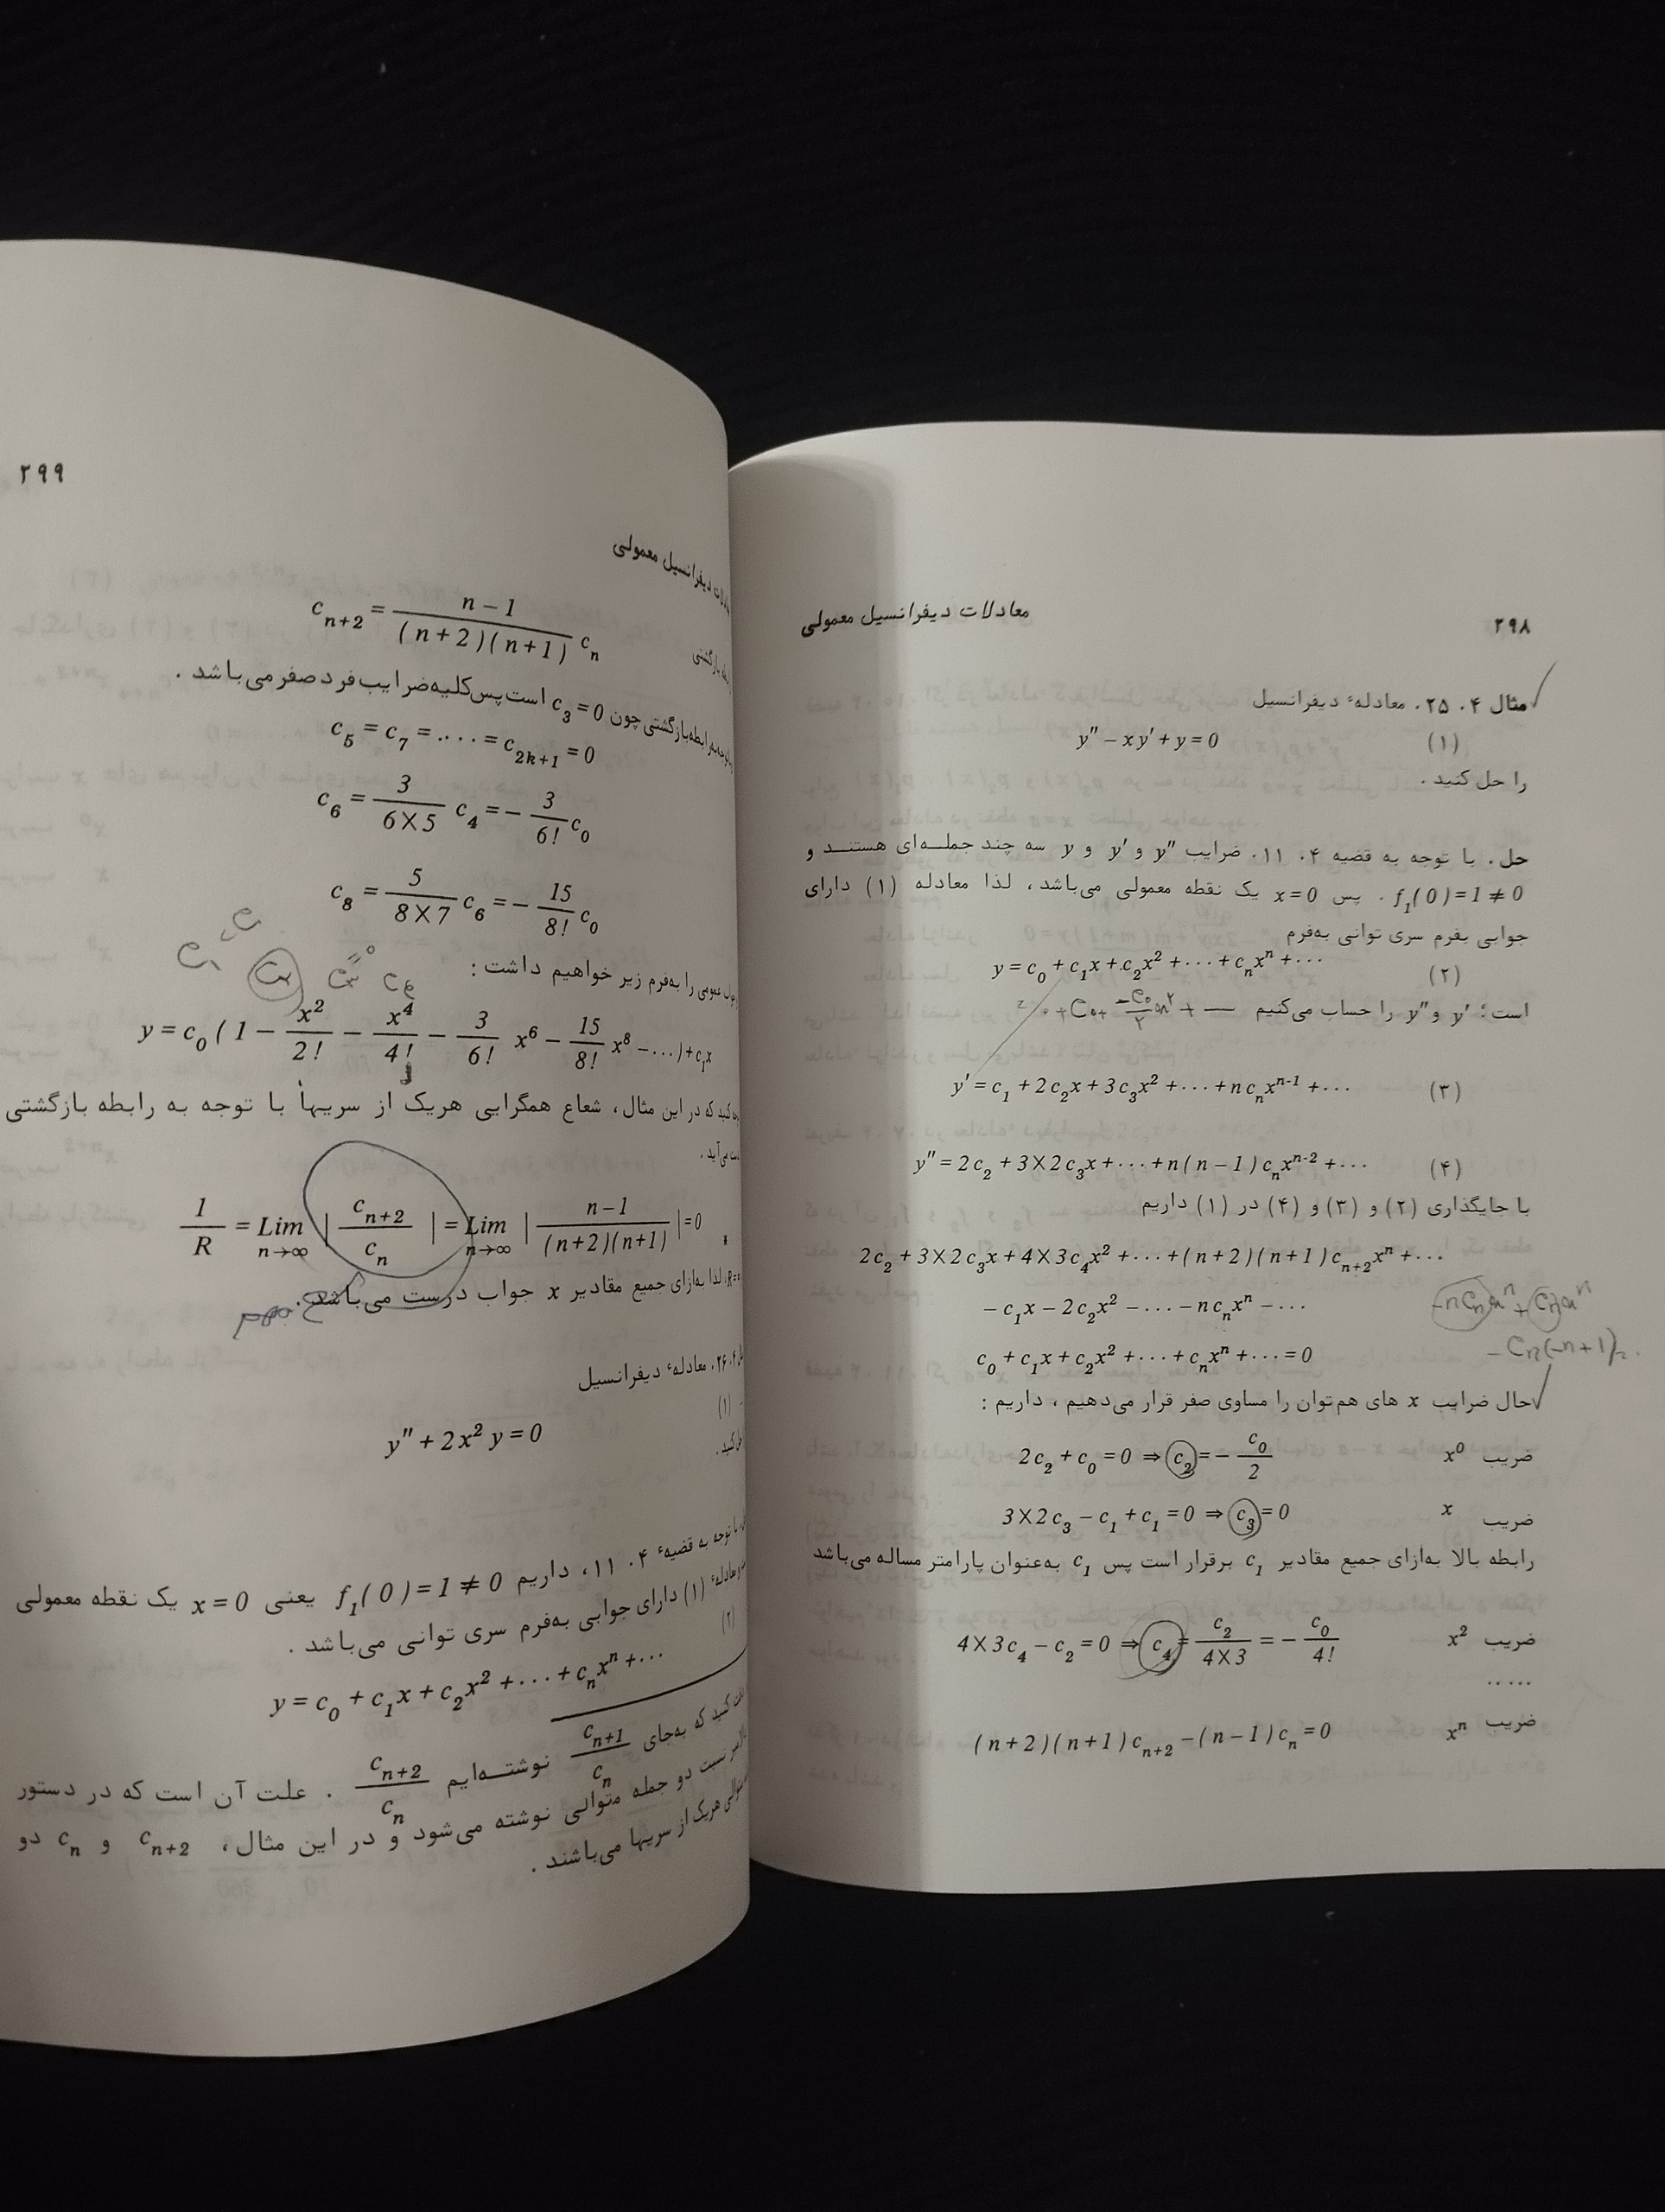 ۲۹۸
معادلات دیفرانسیل معمولی
مثال ۴ .۲۵ . معادلهٔ دیفرانسیل
y″ − xy′ + y = 0 (۱)
را حل کنید .
حل . با توجه به قضیه ۴ .۱۱ . ضرایب y″ و y′ و y سه چند جمله‌ای هستند و
f₁(0)=1≠0 . پس x=0 یک نقطه معمولی می‌باشد، لذا معادله (۱) دارای
جوابی بفرم سری توانی به‌فرم
y = c₀ + c₁x + c₂x² + ··· + cₙxⁿ + ··· (۲)
است؛ y′ و y″ را حساب می‌کنیم
y′ = c₁ + 2c₂x + 3c₃x² + ··· + ncₙxⁿ⁻¹ + ··· (۳)
y″ = 2c₂ + 3×2c₃x + ··· + n(n−1)cₙxⁿ⁻² + ··· (۴)
با جایگذاری (۲) و (۳) و (۴) در (۱) داریم
2c₂ + 3×2c₃x + 4×3c₄x² + ··· + (n+2)(n+1)cₙ₊₂xⁿ + ···
− c₁x − 2c₂x² − ··· − ncₙxⁿ − ···
−ncₙxⁿ + cₙxⁿ
c₀ + c₁x + c₂x² + ··· + cₙxⁿ + ··· = 0
cₙ(−n+1)
حال ضرایب x های هم‌توان را مساوی صفر قرار می‌دهیم ، داریم :
2c₂ + c₀ = 0 ⇒ c₂ = − c₀/2 ضریب x⁰
3×2c₃ − c₁ + c₁ = 0 ⇒ c₃ = 0 ضریب x
رابطه بالا به‌ازای جمیع مقادیر c₁ برقرار است پس c₁ به‌عنوان پارامتر مساله می‌باشد
4×3c₄ − c₂ = 0 ⇒ c₄ = c₂/(4×3) = − c₀/4! ضریب x²
.....
(n+2)(n+1)cₙ₊₂ − (n−1)cₙ = 0 ضریب xⁿ
۲۹۹
دیفرانسیل معمولی
cₙ₊₂ = (n−1)/((n+2)(n+1)) cₙ
رابطه‌بازگشتی چون c₃=0 است پس کلیه ضرایب فرد صفر می‌باشد .
c₅ = c₇ = ..... = c₂ₖ₊₁ = 0
c₆ = 3/(6×5) c₄ = − 3/6! c₀
c₈ = 5/(8×7) c₆ = − 15/8! c₀
عمومی را به‌فرم زیر خواهیم داشت :
y = c₀(1 − x²/2! − x⁴/4! − 3/6! x⁶ − 15/8! x⁸ − ...) + c₁x
کنید که در این مثال، شعاع همگرایی هریک از سریها با توجه به رابطه بازگشتی
می‌آید .
1/R = Lim n→∞ |cₙ₊₂/cₙ| = Lim n→∞ |(n−1)/((n+2)(n+1))| = 0
لذا به‌ازای جمیع مقادیر x جواب درست می‌باشد .
مهم
۲۶ . معادلهٔ دیفرانسیل
y″ + 2x²y = 0 (۱)
کنید .
با توجه به قضیهٔ ۴ .۱۱، داریم f₁(0)=1≠0 یعنی x=0 یک نقطه معمولی
معادلهٔ (۱) دارای جوابی به‌فرم سری توانی می‌باشد .
y = c₀ + c₁x + c₂x² + ··· + cₙxⁿ + ··· (۲)
کنید که به‌جای cₙ₊₁/cₙ نوشته‌ایم cₙ₊₂/cₙ . علت آن است که در دستور
نسبت دو جمله متوالی نوشته می‌شود و در این مثال، cₙ₊₂ و cₙ دو
هریک از سریها می‌باشند .